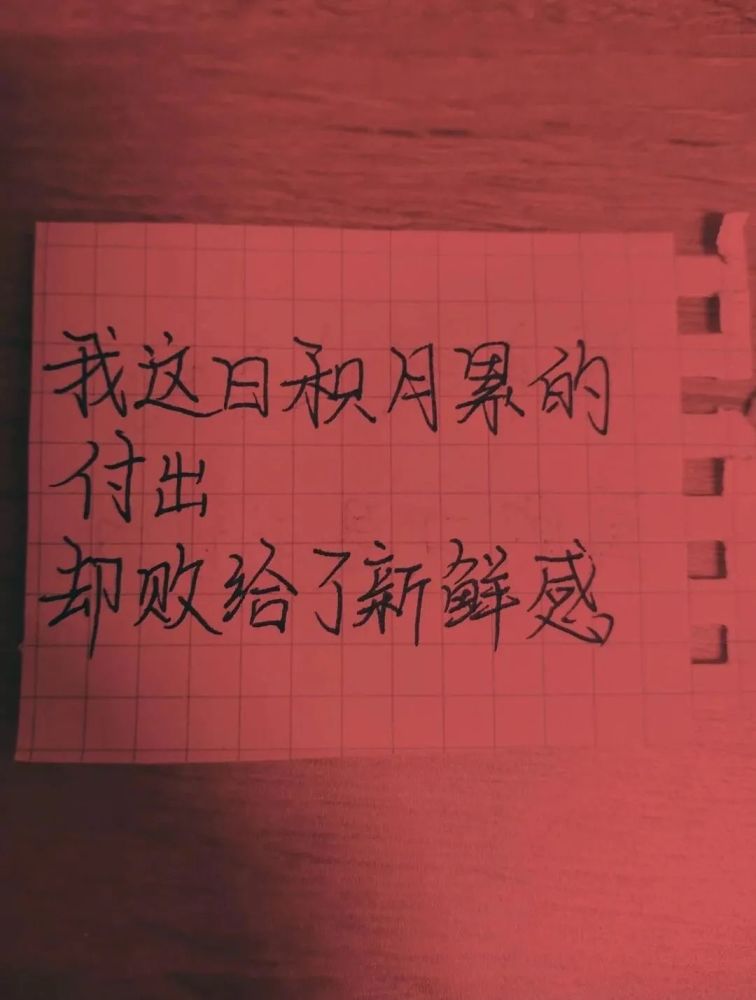 我这日积月累的
付出
却败给了新鲜感